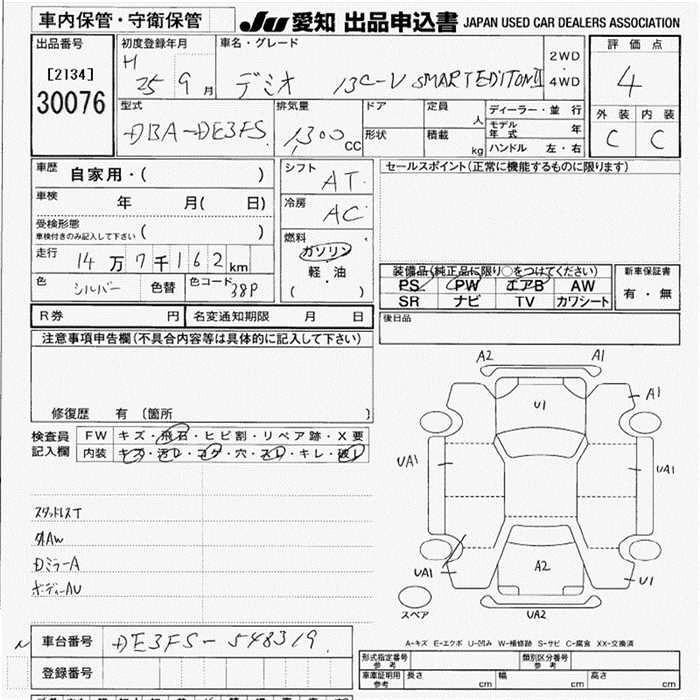 車内保管・守衛保管 JU 愛知 出品申込書 JAPAN USED CAR DEALERS ASSOCIATION
出品番号 初度登録年月 車名・グレード 2WD・4WD 評価点
[2134] H 25 9月 デミオ 13C-V SMART EDITION II 4
30076
型式 排気量 ドア 定員 人 ディーラー・並行 外装 内装
DBA-DE3FS 1,300 CC 形状 積載 kg モデル年式 年 C C
ハンドル 左・右
車歴 自家用・( ) シフト AT セールスポイント(正常に機能するものに限ります)
車検 年 月( 日) 冷房 AC
受検形態 ( )
車検付きのみ記入して下さい
燃料 ガソリン 軽・油 ( )
走行 14万7千162km
色 シルバー 色替 色コード 38P
装備品(純正品に限り○をつけてください) 新車保証書
PS PW エアB AW 有・無
SR ナビ TV カワシート
R券 円 名変通知期限 月 日 後日品
注意事項申告欄(不具合内容等は具体的に記入して下さい)
修復歴 有 〔箇所 〕
検査員 FW キズ・飛石・ヒビ割・リペア跡・X要
記入欄 内装 キズ・汚レ・コゲ・穴・スレ・キレ・破レ
スタッドレスT
社外AW
Dミラー A
ボディー AU
A2 A1
U1 A1
UA1 UA1
UA1 A2 U1
スペア UA2
A-キズ E-エクボ U-凹み W-補修跡 S-サビ C-腐食 XX-交換済
車台番号 DE3FS-548319
登録番号
形式指定番号 参考 類別区分番号 参考
車庫証明用 参考 長さ cm 幅 cm 高さ cm